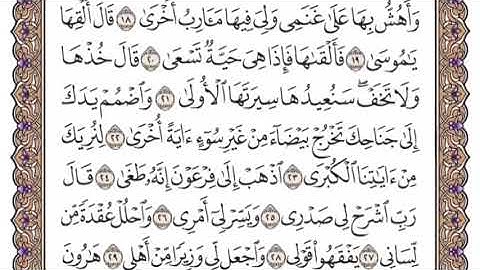 وَأَهُشُّ بِهَا عَلَىٰ غَنَمِى وَلِىَ فِيهَا مَـَٔارِبُ أُخْرَىٰ ١٨ قَالَ أَلْقِهَا
يَـٰمُوسَىٰ ١٩ فَأَلْقَىٰهَا فَإِذَا هِىَ حَيَّةٌ تَسْعَىٰ ٢٠ قَالَ خُذْهَا
وَلَا تَخَفْ ۖ سَنُعِيدُهَا سِيرَتَهَا ٱلْأُولَىٰ ٢١ وَٱضْمُمْ يَدَكَ
إِلَىٰ جَنَاحِكَ تَخْرُجْ بَيْضَآءَ مِنْ غَيْرِ سُوٓءٍ ءَايَةً أُخْرَىٰ ٢٢ لِنُرِيَكَ
مِنْ ءَايَـٰتِنَا ٱلْكُبْرَى ٢٣ ٱذْهَبْ إِلَىٰ فِرْعَوْنَ إِنَّهُۥ طَغَىٰ ٢٤ قَالَ
رَبِّ ٱشْرَحْ لِى صَدْرِى ٢٥ وَيَسِّرْ لِىٓ أَمْرِى ٢٦ وَٱحْلُلْ عُقْدَةً مِّن
لِّسَانِى ٢٧ يَفْقَهُوا۟ قَوْلِى ٢٨ وَٱجْعَل لِّى وَزِيرًا مِّنْ أَهْلِى ٢٩ هَـٰرُونَ